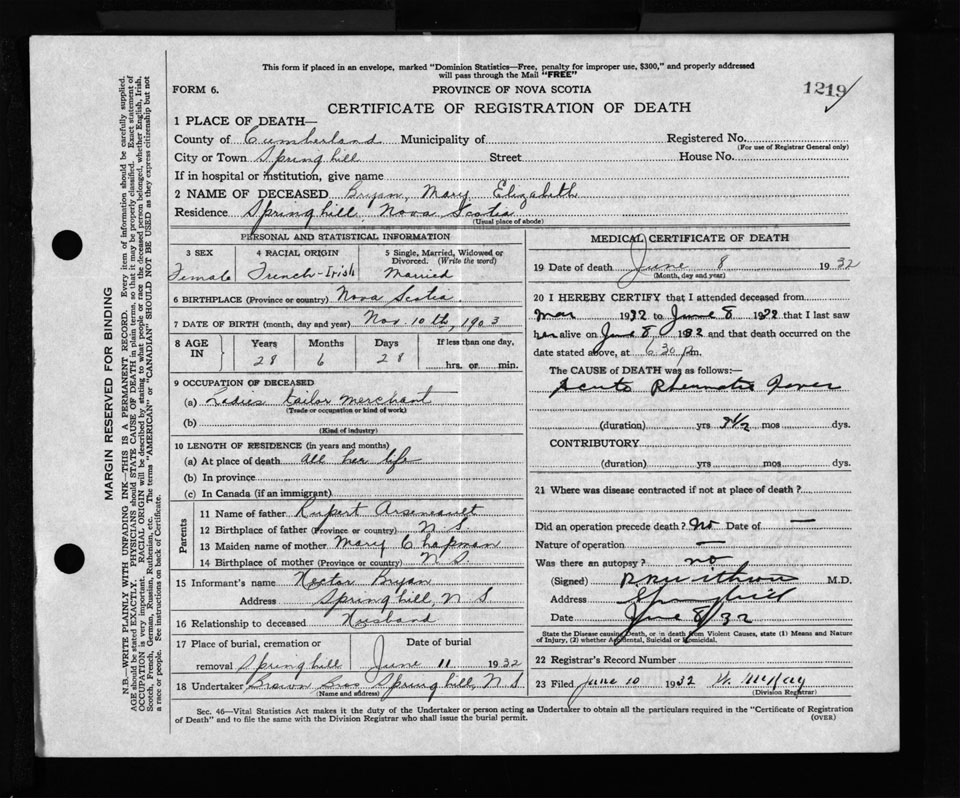 This form if placed in an envelope, marked "Dominion Statistics—Free, penalty for improper use, $300," and properly addressed
will pass through the Mail "FREE"
FORM 6.
PROVINCE OF NOVA SCOTIA
1219
CERTIFICATE OF REGISTRATION OF DEATH
1 PLACE OF DEATH—
County of Cumberland Municipality of Registered No.
(For use of Registrar General only)
City or Town Springhill Street House No.
If in hospital or institution, give name
2 NAME OF DECEASED Bryan, Mary Elizabeth
Residence Springhill Nova Scotia
(Usual place of abode)
PERSONAL AND STATISTICAL INFORMATION
3 SEX 4 RACIAL ORIGIN 5 Single, Married, Widowed or Divorced. (Write the word)
Female French-Irish Married
6 BIRTHPLACE (Province or country) Nova Scotia.
7 DATE OF BIRTH (month, day and year) Nov 10th, 1903
8 AGE IN Years Months Days If less than one day,
28 6 28 hrs. or min.
9 OCCUPATION OF DECEASED
(a) Ladies tailor merchant
(Trade or occupation or kind of work)
(b)
(Kind of industry)
10 LENGTH OF RESIDENCE (in years and months)
(a) At place of death all her life
(b) In province
(c) In Canada (if an immigrant)
Parents
11 Name of father Rupert Arseneault
12 Birthplace of father (Province or country) N S
13 Maiden name of mother Mary Chapman
14 Birthplace of mother (Province or country) N S.
15 Informant's name Hector Bryan
Address Springhill, N S
16 Relationship to deceased Husband
17 Place of burial, cremation or Date of burial
removal Springhill June 11 1932
18 Undertaker Brown Bros Springhill, N S
(Name and address)
MEDICAL CERTIFICATE OF DEATH
19 Date of death June 8 1932
(Month, day and year)
20 I HEREBY CERTIFY that I attended deceased from
Mar 1932 to June 8 1932 that I last saw
her alive on June 8 1932 and that death occurred on the
date stated above, at 6.30 pm.
The CAUSE of DEATH was as follows:—
Acute Rheumatic Fever
(duration) yrs mos dys.
CONTRIBUTORY
(duration) yrs mos dys.
21 Where was disease contracted if not at place of death?
Did an operation precede death? No Date of —
Nature of operation —
Was there an autopsy? no
(Signed) M.D.
Address Springhill
Date June 8/32
State the Disease causing Death, or in death from Violent Causes, state (1) Means and Nature
of Injury, (2) whether Accidental, Suicidal or Homicidal.
22 Registrar's Record Number
23 Filed June 10 1932
(Division Registrar)
Sec. 46—Vital Statistics Act makes it the duty of the Undertaker or person acting as Undertaker to obtain all the particulars required in the "Certificate of Registration
of Death" and to file the same with the Division Registrar who shall issue the burial permit.
(OVER)
MARGIN RESERVED FOR BINDING
N.B.—WRITE PLAINLY WITH UNFADING INK—THIS IS A PERMANENT RECORD. Every item of information should be carefully supplied.
AGE should be stated EXACTLY. PHYSICIANS should STATE CAUSE OF DEATH in plain terms, so that it may be properly classified. Exact statement of
OCCUPATION is very important. RACIAL ORIGIN will be described by stating to what people or race the deceased person belonged, whether English, Irish,
Scotch, French, German, Russian, Ruthenian, etc. The terms "AMERICAN" or "CANADIAN" SHOULD NOT BE USED as they express citizenship but not
a race or people. See instructions on back of Certificate.